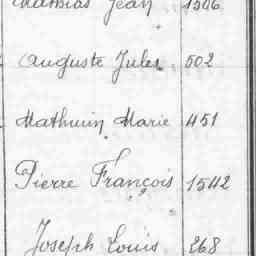 Mathias Jean 1506
Auguste Jules 502
Mathurin Marie 451
Pierre François 1542
Joseph Louis 268